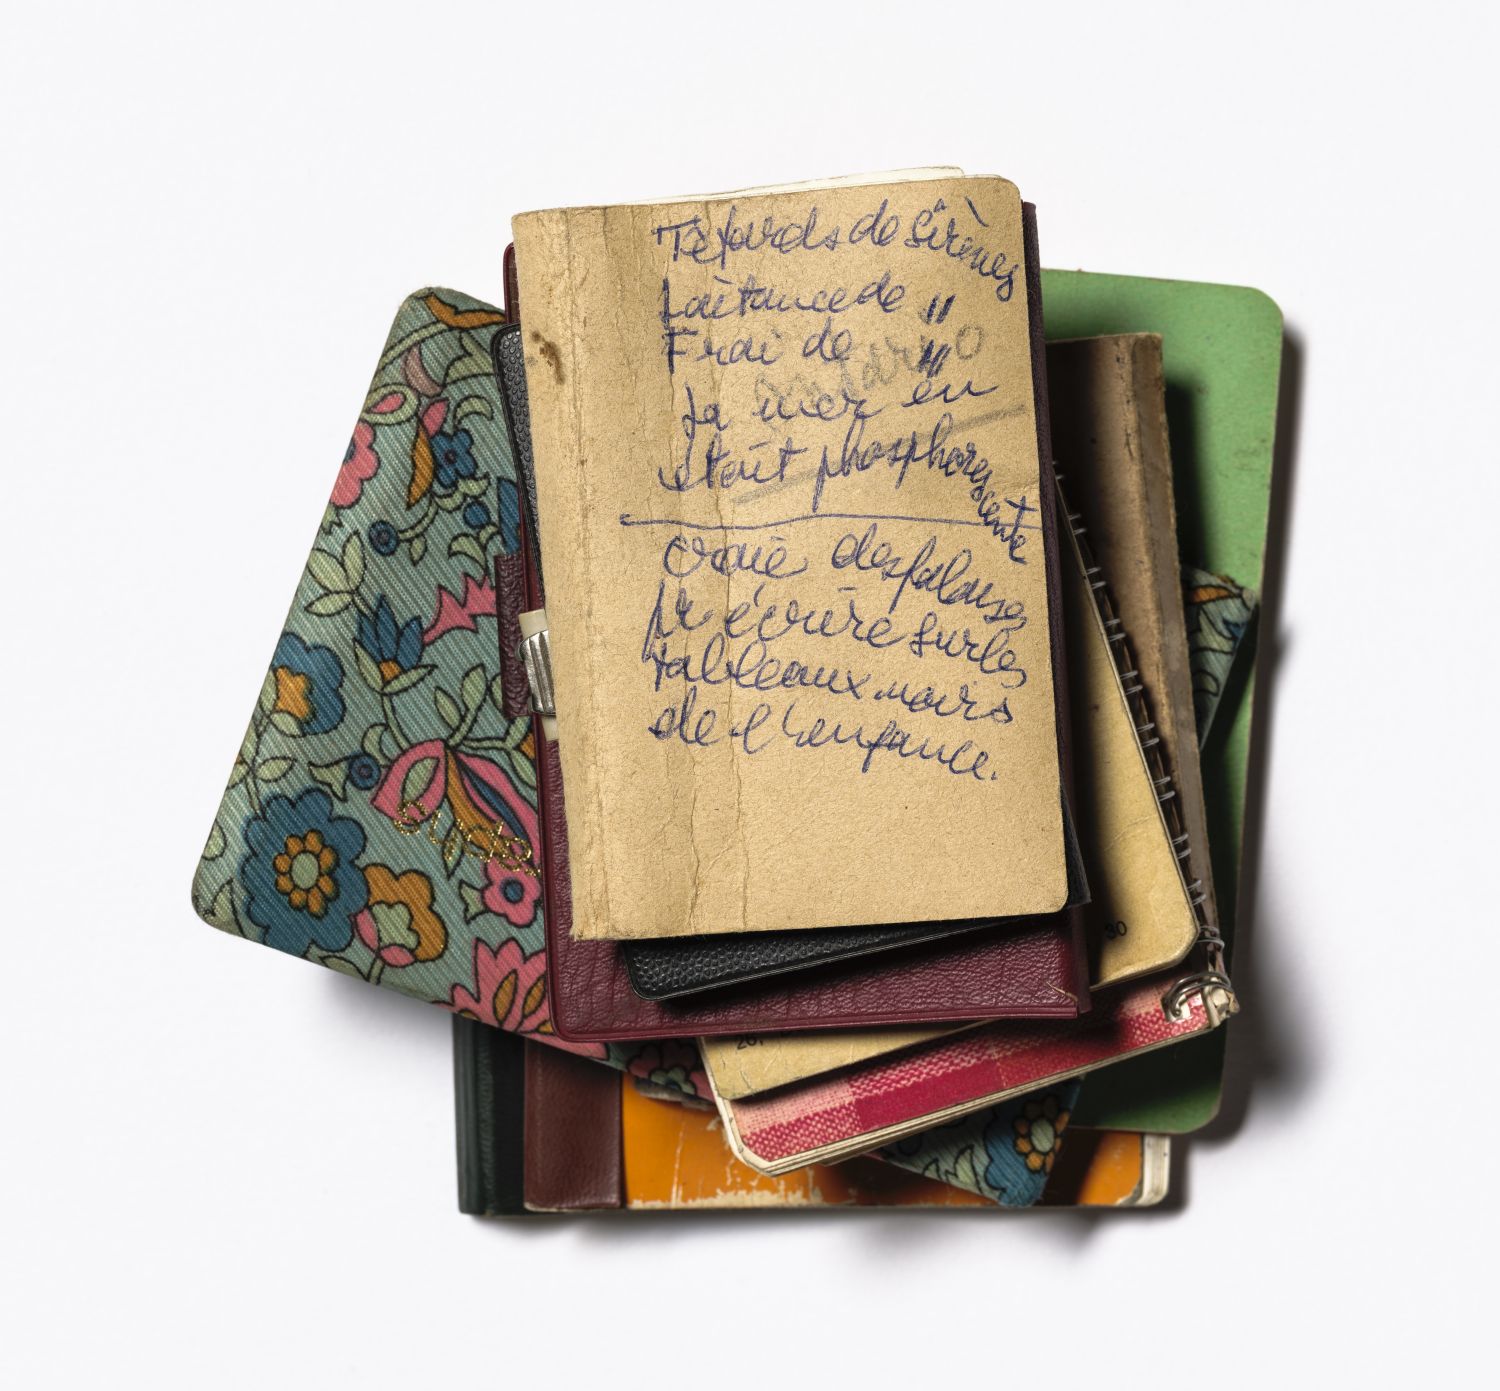 Têtards de Sirènes
Laitance de "
Frai de "
La mer en
était phosphorescente
craie des falaises
pr écrire sur les
tableaux noirs
de l'enfance.
30
20,